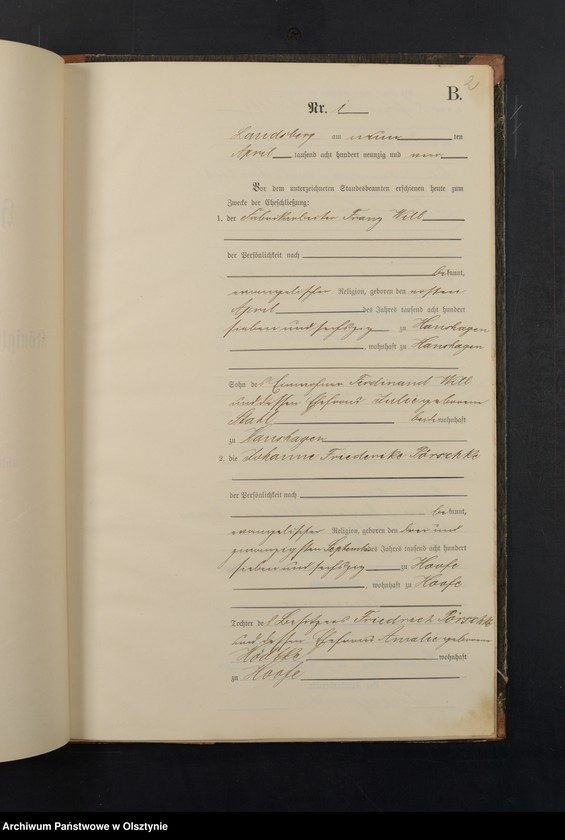 2
B.
Nr. 1
Landsberg am neun ten
April tausend acht hundert neunzig und vier
Vor dem unterzeichneten Standesbeamten erschienen heute zum
Zwecke der Eheschließung:
1. der Fabrikarbeiter Franz Will
der Persönlichkeit nach
bekannt,
evangelischer Religion, geboren den ersten
April des Jahres tausend acht hundert
sieben und sechszig zu Hanshagen
, wohnhaft zu Hanshagen
Sohn des Einwohner Ferdinand Will
und dessen Ehefrau Julie geborenen
Stahl beide wohnhaft
zu Hanshagen
2. die Johanne Friederike
der Persönlichkeit nach
bekannt,
evangelischer Religion, geboren den drei und
zwanzigsten September des Jahres tausend acht hundert
sieben und sechszig zu Hoofe
, wohnhaft zu Hoofe
Tochter des Besitzers Friedrich
und dessen Ehefrau Amalie geborenen
wohnhaft
zu Hoofe
Archiwum Państwowe w Olsztynie